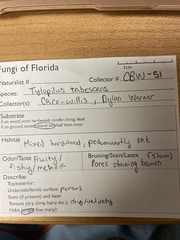 Fungi of Florida
1cm
Naturalist #
Collector # CBW-51
Species: Tylopilus tabescens
Collector(s): Chro-willis, Dylan Warner
Substrate
if on wood, note: hardwood, conifer; living, dead
if on ground, note: leaf litter, moss
Habitat Mixed hardwood, predominantly oak
Odor/Taste Fruity/
fishy/metallic
Bruising/Stain/Latex (slow)
Pores staining brown
Describe:
Top/exterior:
Underside/surface porous
Stem (if present) and base:
Texture (dry, slimy, hairy, etc.) dry/velvety
Habit: few, many)